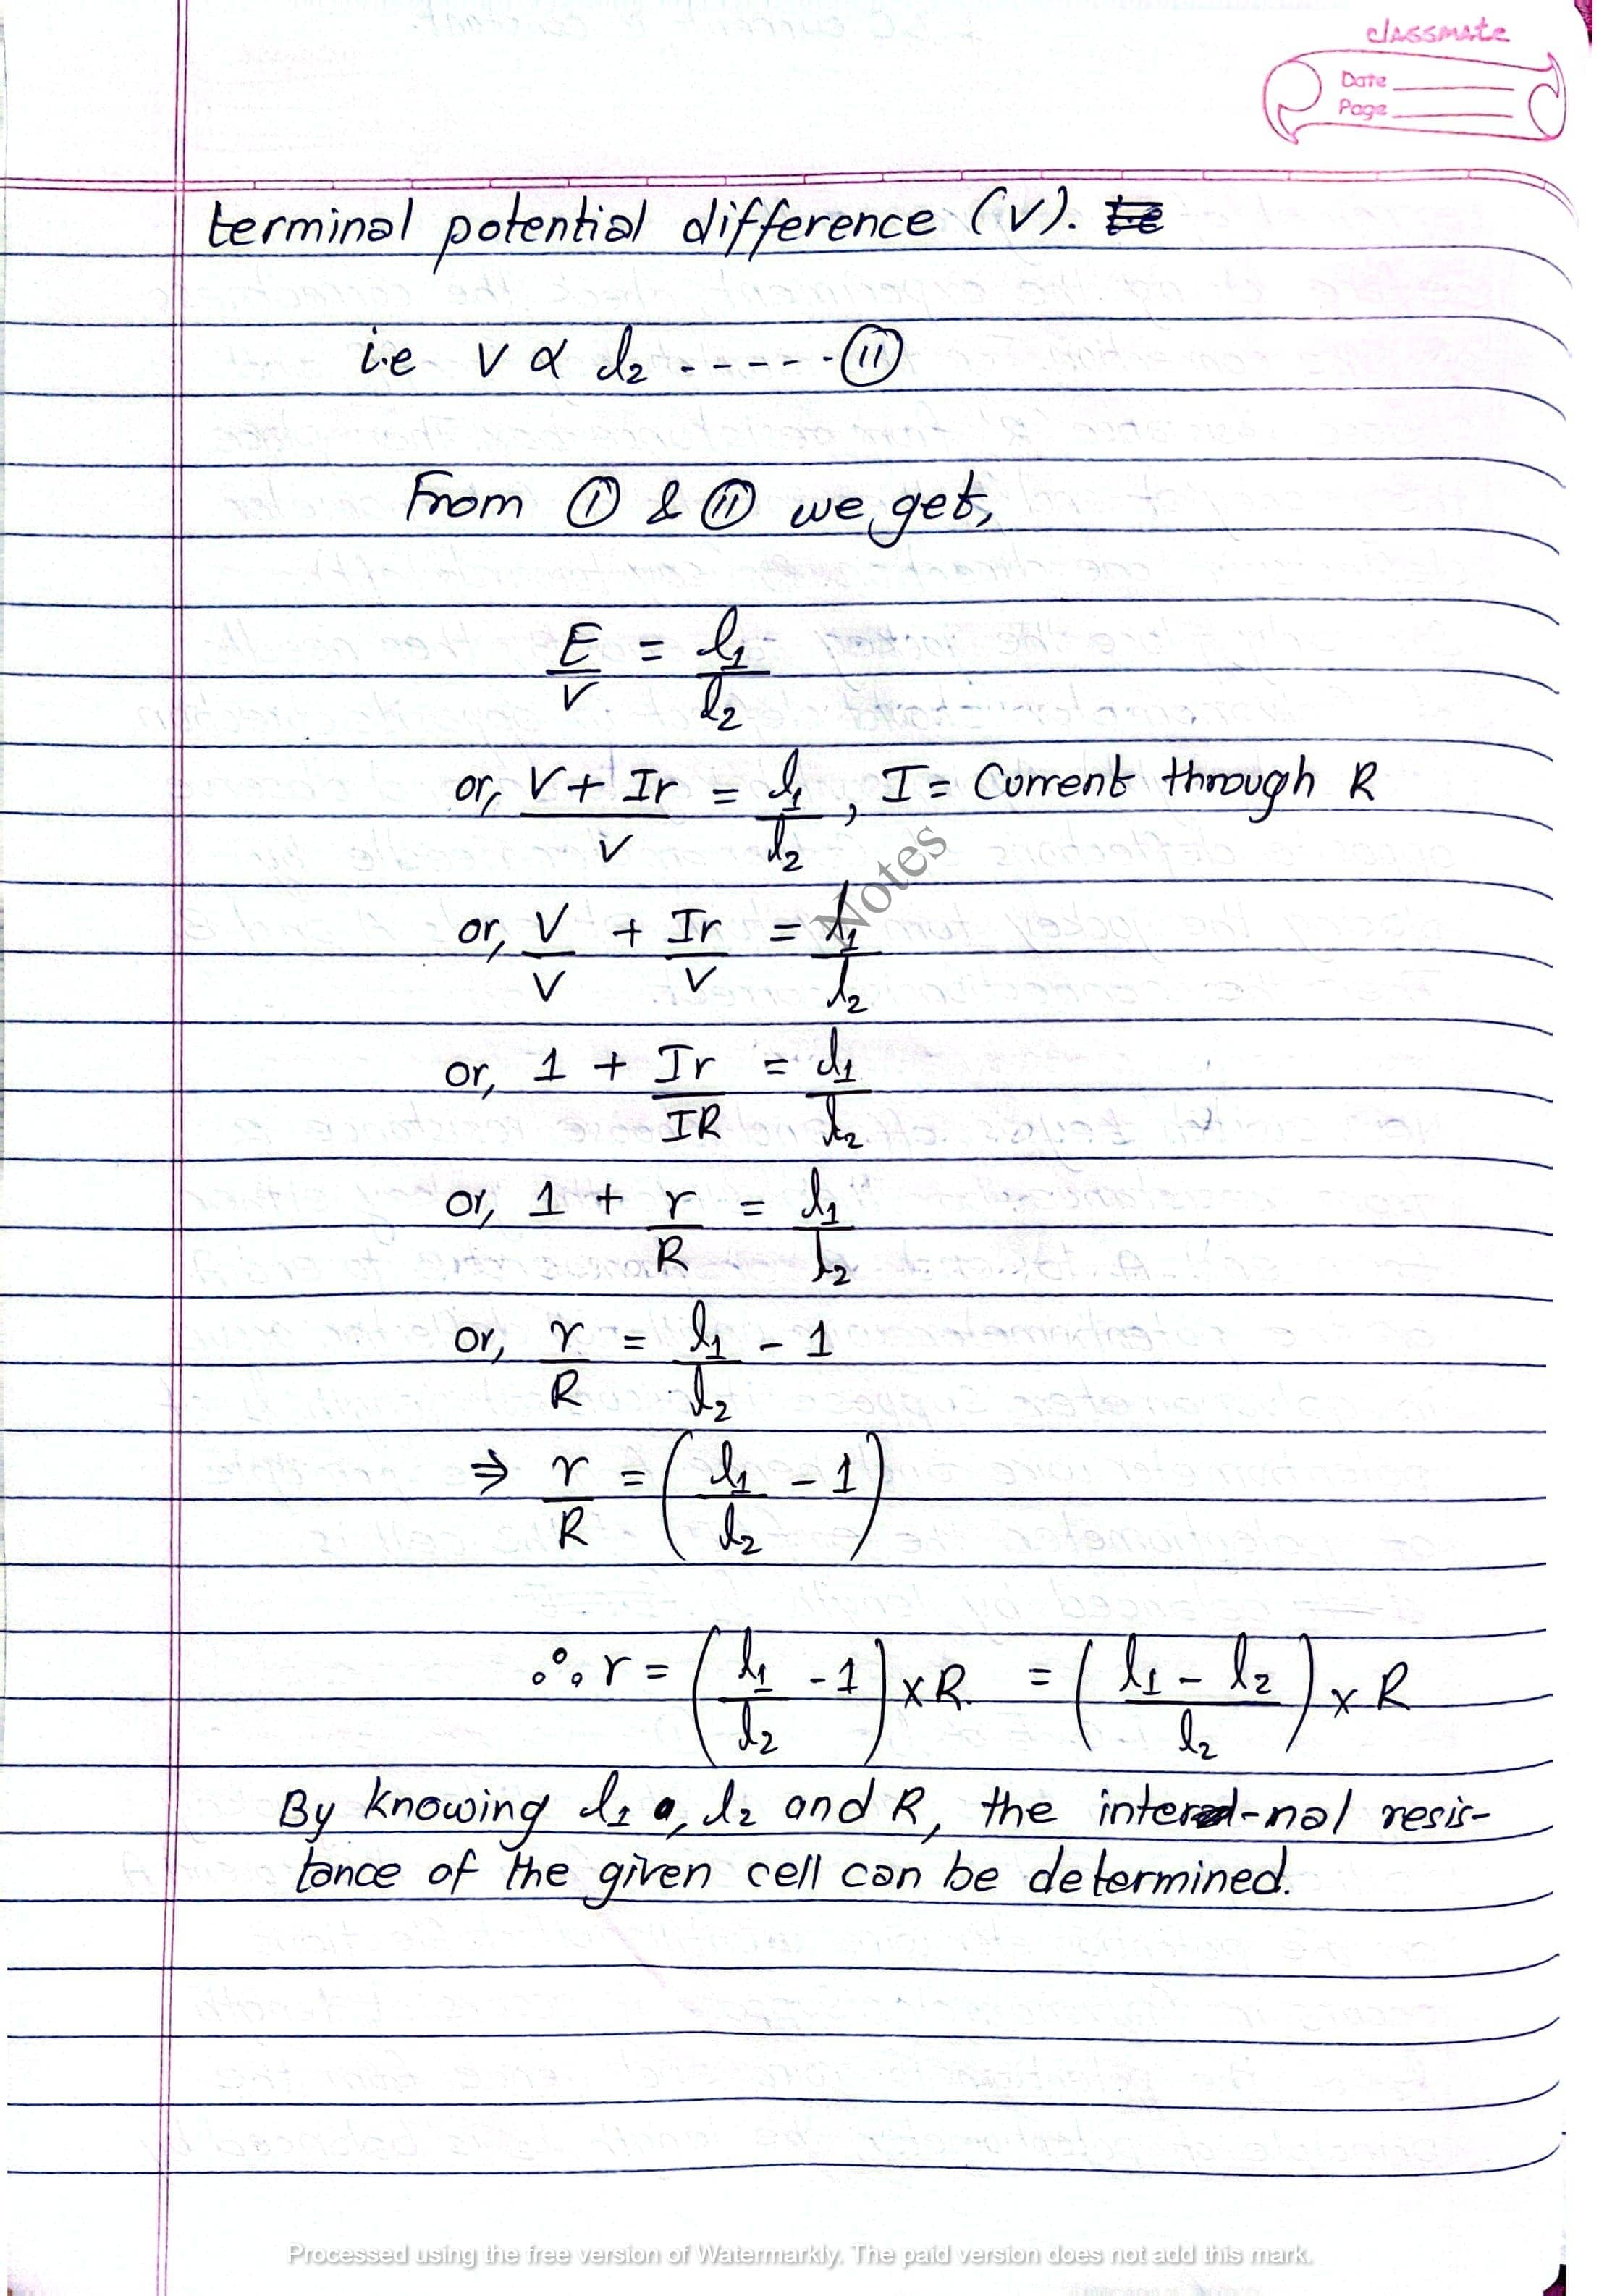 classmate
Date
Page
terminal potential difference (V).
i.e V ∝ l₂ ------(II)
From (I) & (II) we get,
E/V = l₁/l₂
or, V + Ir/V = l₁/l₂, I = Current through R
or, V/V + Ir/V = l₁/l₂
or, 1 + Ir/IR = l₁/l₂
or, 1 + r/R = l₁/l₂
or, r/R = l₁/l₂ - 1
⇒ r/R = (l₁/l₂ - 1)
∴ r = (l₁/l₂ - 1) × R = (l₁ - l₂/l₂) × R
By knowing l₁, l₂ and R, the inter-nal resis-
tance of the given cell can be determined.
Notes
Processed using the free version of Watermarkly. The paid version does not add this mark.